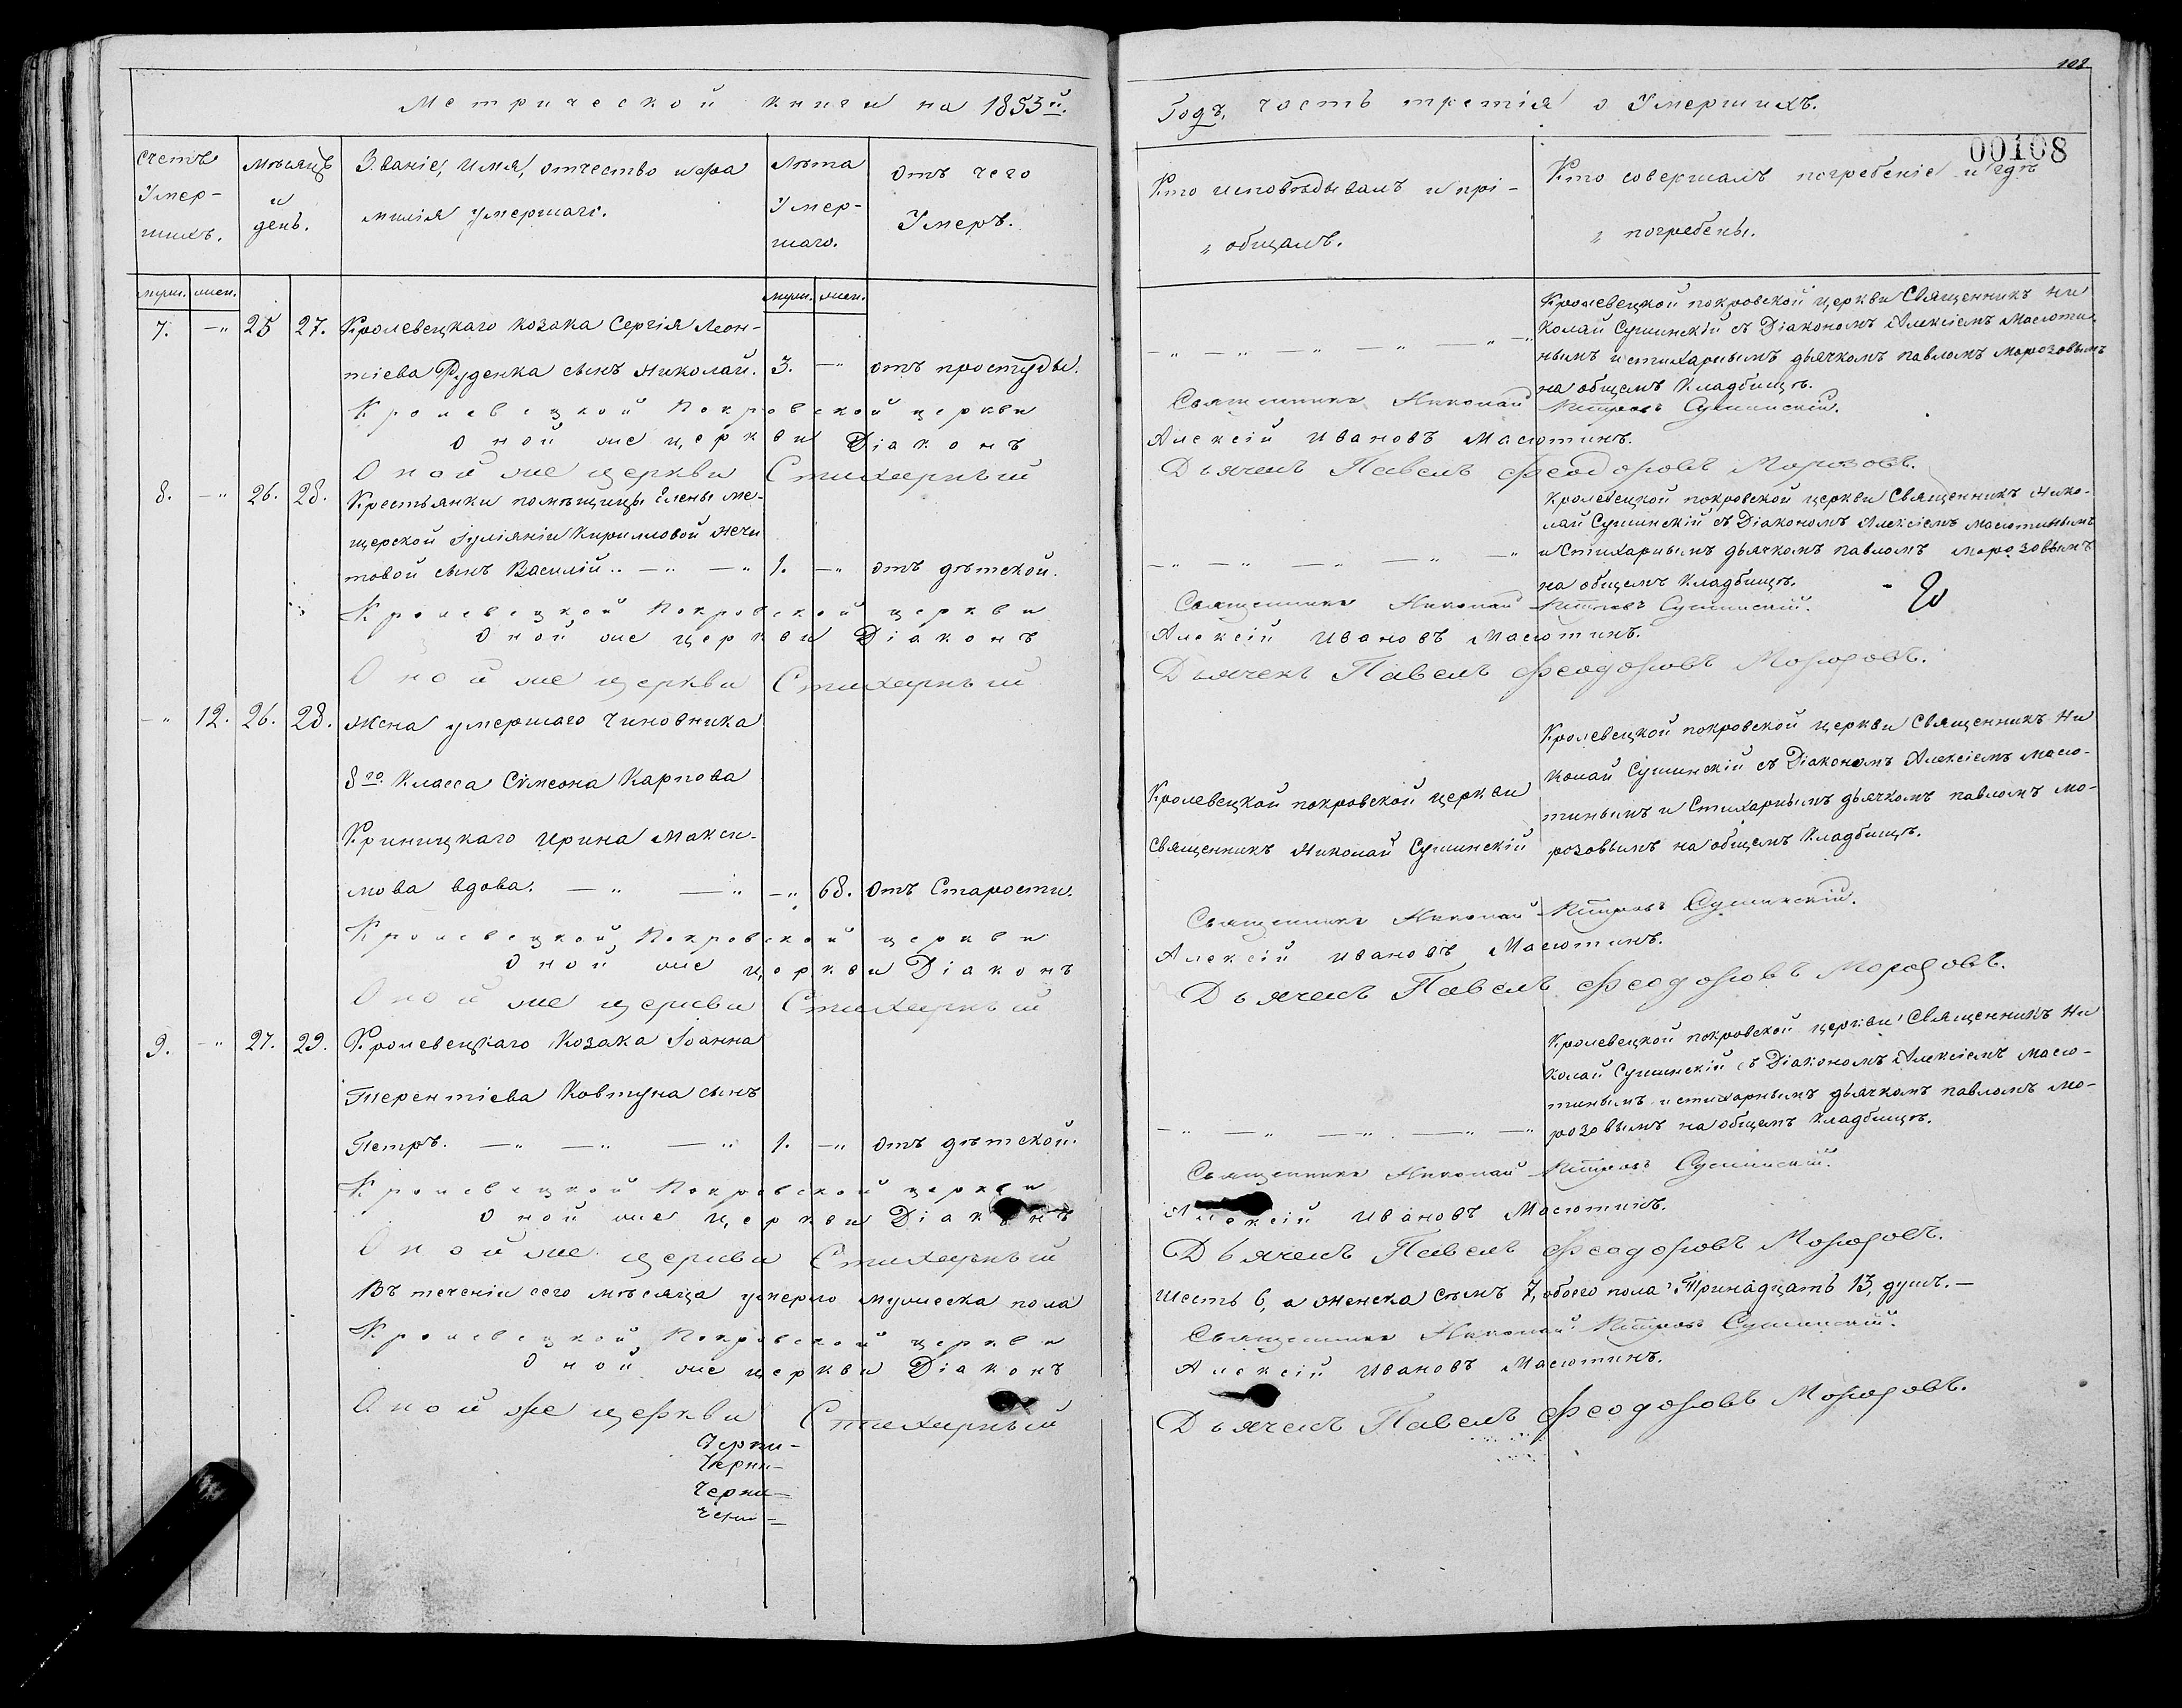 Метрической книги на 1853й.
Счетъ Умер-шихъ.
Мѣсяцъ и день.
Званіе, имя, отчество и фа
милія умершаго.
Лѣта Умер-шаго.
Отъ чего Умеръ.
муж. жен.
муж. жен.
7. —" 25 27. Кролевецкаго козака Сергія Леон-
тіева Руденка сынъ Николай. 3. —" отъ простуды.
Кролевецкой Покровской церкви
Оной же церкви Діаконъ
Оной же церкви Стихарный
8. —" 26. 28. Крестьянки помѣщицы Елены Ме-
щерской Іуліяніи Кирилловой Нечи
товой сынъ Василій.. —" —" 1. —" отъ дѣтской.
Кролевецкой Покровской церкви
Оной же церкви Діаконъ
Оной же церкви Стихарный
—" 12. 26. 28. Жена умершаго Чиновника
8го Класса Сѵмеона Карпова
Криницкаго Ирина Макси-
мова вдова. —" —" —" 68. Отъ Старости.
Кролевецкой Покровской церкви
Оной же церкви Діаконъ
Оной же церкви Стихарный
9. —" 27. 29. Кролевецкаго Козака Іоанна
Терентіева Ковтуна сынъ
Петръ. —" —" —" 1. —" Отъ дѣтской.
Кролевецкой Покровской церкви
Оной же церкви Діаконъ
Оной же церкви Стихарный
Въ теченіи сего мѣсяца умерло мужеска пола
Кролевецкой Покровской церкви
Оной же церкви Діаконъ
Оной же церкви Стихарный
Черни-
Черни-
Черни-
108
Годъ, часть третія о Умершихъ.
00108
Кто исповѣдывалъ и прі-
" общалъ.
Кто совершалъ погребеніе и гдѣ
" погребены.
Кролевецкой покровской церкви Священникъ Ни
колай Сушинскій съ Діакономъ Алексіемъ Масюти-
нымъ и стихарнымъ дьячкомъ павломъ Морозовымъ
на общемъ Кладбищѣ.
Священникъ Николай Петровъ Сушинскій.
Алексій Ивановъ Масютинъ.
Дьячекъ Павелъ Феодоровъ Морозовъ.
Кролевецкой покровской церкви Священникъ Нико-
лай Сушинскій съ Діакономъ Алексіемъ Масютинымъ
и Стихарнымъ дьячкомъ павломъ Морозовымъ
на общемъ Кладбищѣ.
Священникъ Николай Петровъ Сушинскій.
Алексій Ивановъ Масютинъ.
Дьячекъ Павелъ Феодоровъ Морозовъ.
Кролевецкой покровской церкви
Священникъ Николай Сушинскій
Кролевецкой покровской церкви Священникъ Ни
колай Сушинскій съ Діакономъ Алексіемъ Масю-
тинымъ и Стихарнымъ дьячкомъ павломъ Мо-
розовымъ на общемъ Кладбищѣ.
Священникъ Николай Петровъ Сушинскій.
Алексій Ивановъ Масютинъ.
Дьячекъ Павелъ Феодоровъ Морозовъ.
Кролевецкой покровской церкви Священникъ Ни
колай Сушинскій съ Діакономъ Алексіемъ Масю-
тинымъ и стихарнымъ дьячкомъ павломъ Мо-
розовымъ на общемъ Кладбищѣ.
Священникъ Николай Петровъ Сушинскій.
Алексій Ивановъ Масютинъ.
Дьячекъ Павелъ Феодоровъ Морозовъ.
шесть 6, а женска семъ 7, обоего пола Тринадцать 13, душъ. —
Священникъ Николай Петровъ Сушинскій.
Алексій Ивановъ Масютинъ.
Дьячекъ Павелъ Феодоровъ Морозовъ.